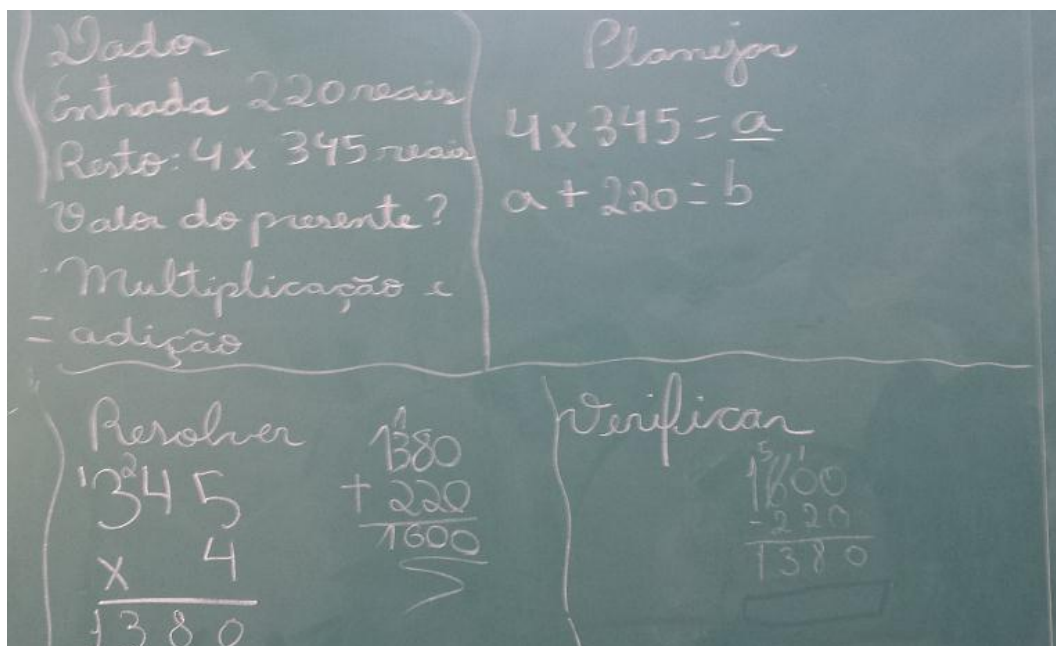 Dados
Entrada 220 reais
Resto: 4 x 345 reais
Valor do presente?
Multiplicação e
= adição
Planejar
4 x 345 = a
a + 220 = b
Resolver
1 2
345
x 4
1380
1
1380
+ 220
1600
Verificar
5 1
1600
- 220
1380